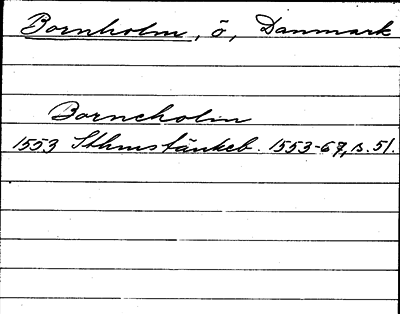 Bornholm, ö, Danmark
Borneholm
1553 Sthms tänkeb. 1553-67, s. 51.